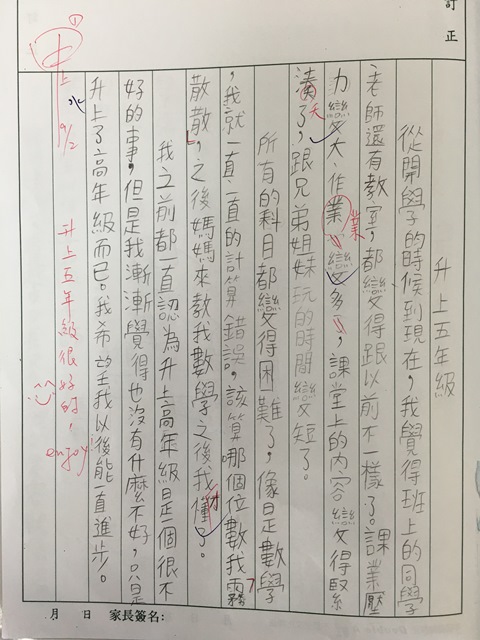 訂正
升上五年級
從開學的時候到現在，我覺得班上的同學
老師還有教室，都變得跟以前不一樣了。課業壓
力變大、作業變多了，課堂上的內容變得緊
業
湊了，跟兄弟姐妹玩的時間變短了。
天
所有的科目都變得困難了，像是數學
，我就一直一直的計算錯誤，該算哪個位數我霧
?
散散，之後媽媽來教我數學之後我才懂了。
我之前都一直認為升上高年級是一個很不
好的事，但是我漸漸覺得也沒有什麼不好，只是
升上了高年級而已。我希望我以後能一直進步。
①
中上
9/2
升上五年級很好的，enjoy
月 日 家長簽名：